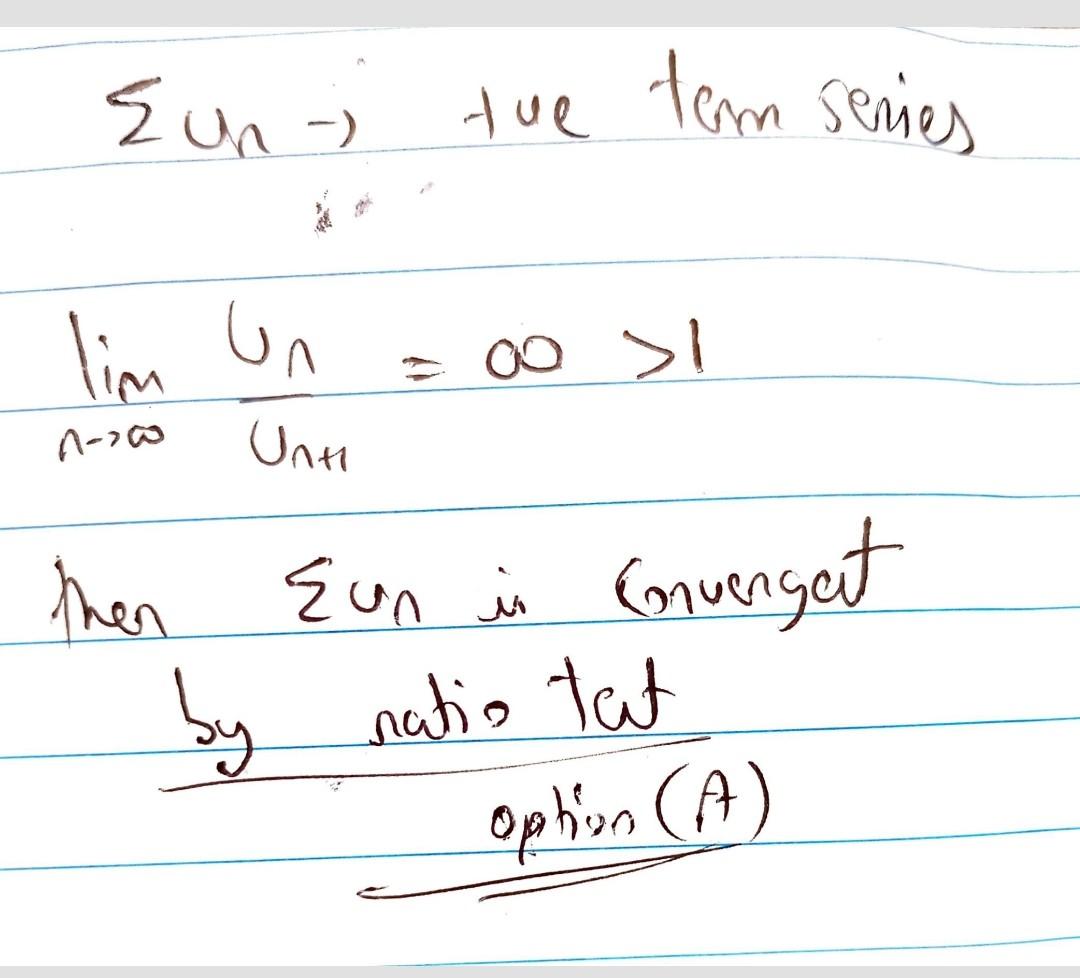 Σun → +ve term series
lim Un = ∞ >1
n→∞ Un+1
then Σun is Convergent
by ratio test
option (A)